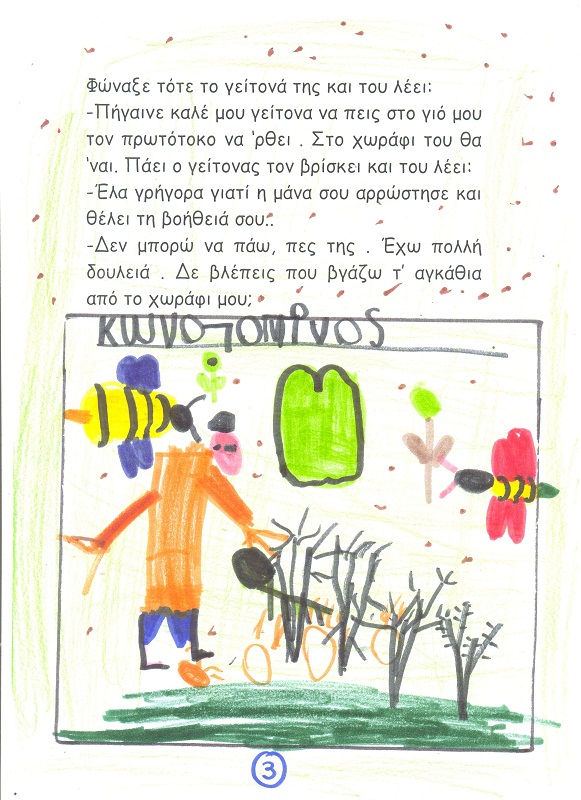 Φώναξε τότε το γείτονά της και του λέει:
-Πήγαινε καλέ μου γείτονα να πεις στο γιό μου
τον πρωτότοκο να 'ρθει . Στο χωράφι του θα
'ναι. Πάει ο γείτονας τον βρίσκει και του λέει:
-Έλα γρήγορα γιατί η μάνα σου αρρώστησε και
θέλει τη βοήθειά σου..
-Δεν μπορώ να πάω, πες της . Έχω πολλή
δουλειά . Δε βλέπεις που βγάζω τ' αγκάθια
από το χωράφι μου;
3